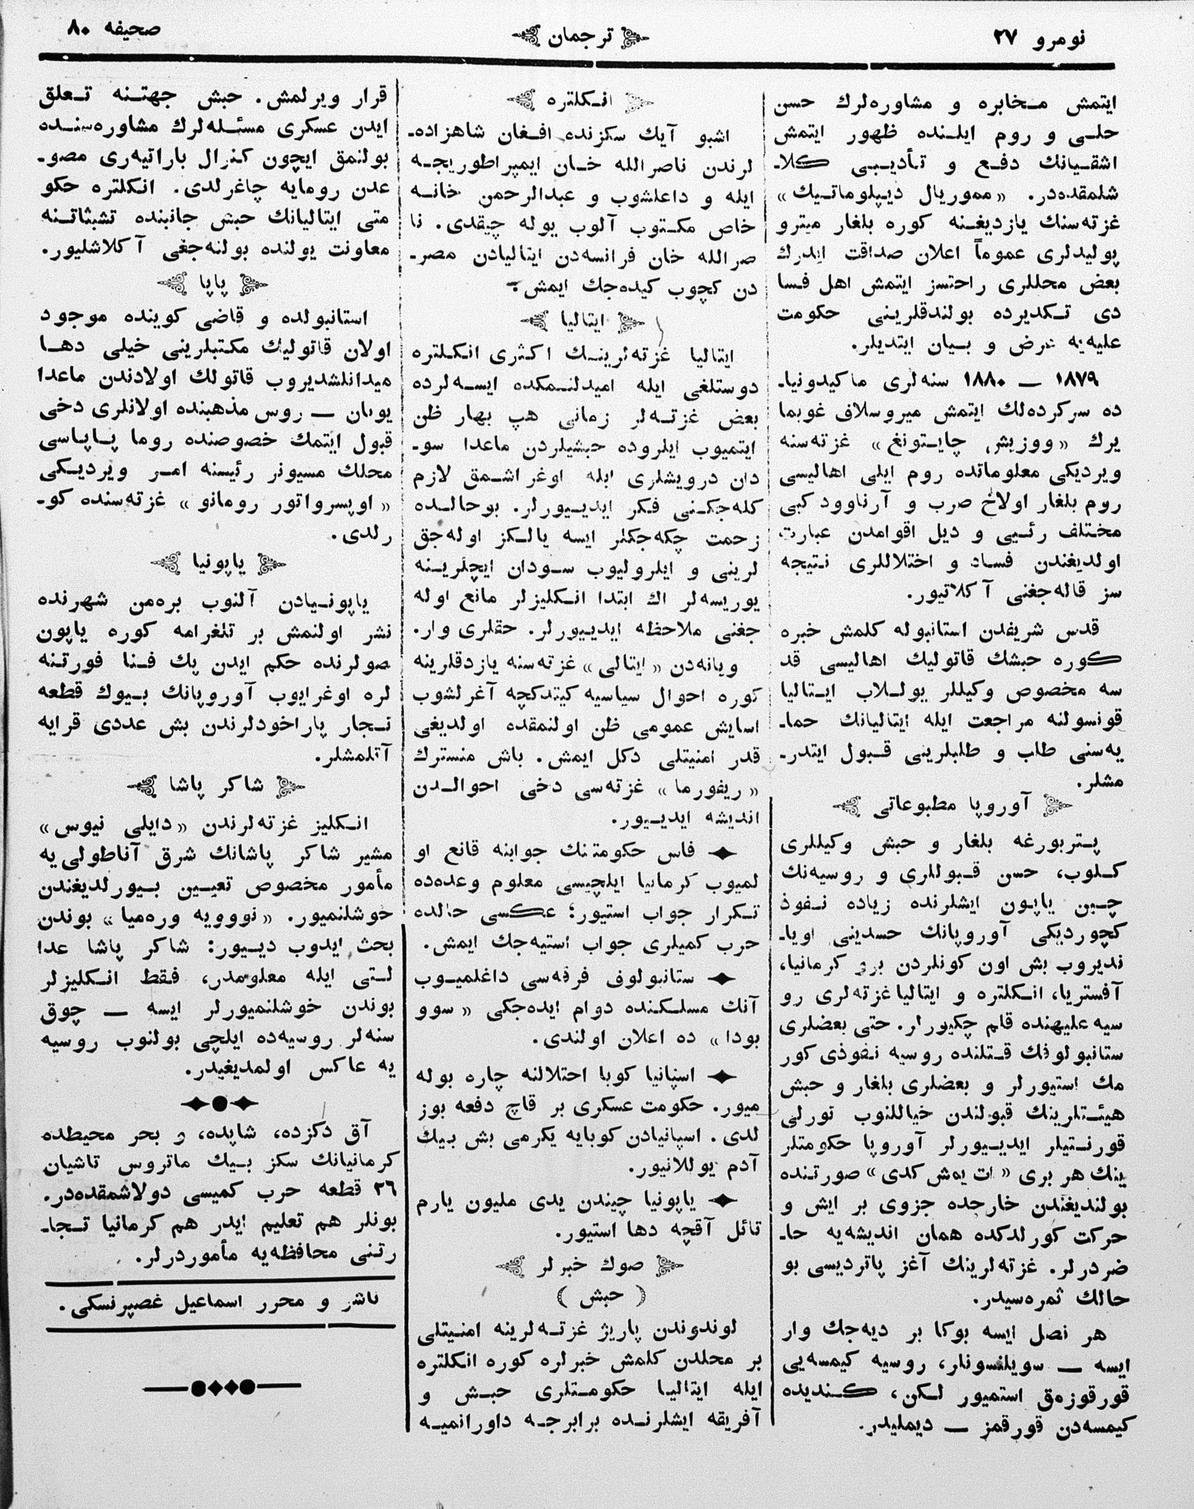 نومرو ٢٧
ترجمان
صحیفه ٨٠
ایتمش مـخابره و مشاوره‌لرك حسن
حلـی و روم ایلـنده ظهور ایتمش
اشقـیانك دفـع و تـأدیـبی كلا‌ـ
شلمقده‌در. «مموریال دیپلوماتیك»
غزته‌سنك یازدیغـنه كوره بلغار میترو
پولیدلری عموماً اعلان صداقت ایدرك
بعض محللری راحتسز ایتمش اهل فسا
دی تـكدیرده بولندقلرینی حكومت
علیه‌یه عرض و بـیان ایتدیلر.
١٨٧٩ — ١٨٨٠ سنه‌لری ماكیدونیاـ
ده سركرده‌لك ایتمش میروسلاف غوبما
یرك «ووزیش چایـتونغ» غزته‌سنه
ویردیكی معلوماتده روم ایلی اهالیسی
روم بلغار اولاخ صرب و آرناوود كبی
مختلف رئـیی و دیل اقوامدن عبارت
اولدیغندن فساد و اختلاللری نـتیجه
سز قاله‌جغنی آكلاتیور.
قدس شریفدن استانبوله كلمش خبره
كوره حبشك قاتولیك اهالیسی قد
سه مخصوص وكیللر یولـلاب ایـتالیا
قونسولنه مراجعت ایله ایتالیانك حماـ
یه‌سنی طلب و طلبلرینی قـبول ایتدرـ
مشلر.
آوروپا مطبوعاتی
پـتربورغه بلغار و حبش وكیللری
كـلوب، حسن قـبوللری و روسیه‌نك
چـین یاپـون ایشلرنده زیاده نـفوذ
كچوردیكی آوروپانك حسدینی اویاـ
ندیروب بش اون كونلردن برو كرمانیا،
آفستریا، انـكلتره و ایتالیا غزته‌لری رو
سیه علیهنده قلم چكیورلر. حتی بعضلری
ستانبولوفك قـتلنده روسیه نـفوذی كور
مك استیورلر و بعضلری بلغار و حبش
هیئـتلرینك قبولندن خیاللنوب تورلی
قورنـتیلر ایدیـیورلر آوروپا حكومتلر
ینك هر بری «ات یوش كدی» صورتـنده
بولندیغندن خارجده جزوی بر ایش و
حركت كورلدكده همان اندیشه‌یه حاـ
ضردرلر. غزته‌لرینك آغز پاتردیسی بو
حالك ثمره‌سیدر.
هر نصل ایسه بوكا بر دیه‌جك وار
ایسه — سویلنسونلر، روسیه كیمسه‌یی
قورقوزمق استمیور لـكن، كـندیده
كیمسه‌دن قورقمز — دیملیدر.
انـكلتره
اشبو آیك سكزنده افـغان شاهزاده‌ـ
لرندن ناصرالله خـان ایمپراطوریچـه
ایله و داعلشوب و عبدالرحمن خانـه
خاص مكـتوب آلوب یوله چیقدی. نا
صرالله خان فرانسه‌دن ایتالیادن مصرـ
دن كچوب كیده‌جك ایمش.
ایتالیا
ایتالیا غزته‌لرینـك اكثری انـكلتره
دوستلغی ایله امیدلنـمكده ایسـه‌لرده
بعض غزتـه‌لر زمانی هپ بهار ظن
ایتمیوب ایلروده حبشیلردن ماعدا سوـ
دان درویشلری ایله اوغراشـمق لازم
كله‌جكـنی فـكر ایدیـیورلر. بوحالـده
زحمت چكه‌جكلر ایسه یالـكز اوله‌جق
لرینی و ایلرولیوب سـودان ایچلریـنه
یوریسه‌لر اك ابتدا انـكلیزلر مانع اوله
جغنی ملاحظه ایدیـیورلر. حقلری وار.
ویانه‌دن «ایتالی» غزته‌سنه یازدقلرینه
كوره احوال سیاسیه كیتدكچه آغرلشوب
اسایش عمومی ظن اولنمقده اولدیغی
قدر امنیتلی دكل ایمش. باش منسترك
«ریفورما» غزته‌سی دخی احوالـدن
اندیشه ایدیـیور.
فاس حكومتـنك جوابنه قانع او
لمیوب كرمانیا ایلچیسی معلوم وعده‌ده
تـكرار جواب استیور؛ عكسی حالده
حرب كمیلری جواب استیه‌جك ایمش.
ستانبولوف فرقه‌سی داغلمیـوب
آنك مسلـكنده دوام ایده‌جكی «سوو
بودا» ده اعلان اولندی.
اسپانیا كوبا احتلالنه چاره بوله
میور. حكومت عسكری بر قاچ دفعه بوز
لدی. اسپانیادن كوبایه یكرمی بش بیك
آدم یوللانیور.
یاپونیا چیندن یدی ملیون یارم
تائل آقچه دها استیور.
صوك خبرلر
(حبش)
لوندوندن پاریژ غزتـه‌لرینه امنیتلی
بر محلدن كلمش خبرلره كوره انكلتره
ایله ایتالیا حكومـتلری حبـش و
آفریقه ایشلرنـده برابرجـه داورانمیـه
قرار ویرلمش. حبش جهتـنه تـعلق
ایدن عسكری مسئـله‌لرك مشاوره‌سنـده
بولنمق ایچون كنرال باراتیه‌ری مصوـ
عدن رومایه چاغرلدی. انـكلتره حكو
متی ایتالیانك حبش جانبنده تشبثاتـنه
معاونت یولنده بولنه‌جغی آكلاشلیور.
پاپا
استانبولده و قاضی كوینده موجود
اولان قاتولیك مكـتبلرینی خیلی دهـا
میدانلشدیروب قاتولك اولادندن ماعدا
یونان — روس مذهبنده اولانلری دخی
قبول ایتمك خصوصنده روما پـاپـاسی
محلك مسیونر رئیسنه امـر ویردیـكی
«اوپسرواتور رومانو» غزته‌سنده كوـ
رلدی.
یاپونیا
یاپونـیادن آلنوب بره‌من شهرنده
نشر اولنمش بر تلغرامه كوره یاپون
صولرنده حكم ایدن پك فـنا فورتـنه
لره اوغرایوب آوروپانك بـیوك قطعه
تـجار پاراخودلرندن بش عددی قرایه
آتلمشلر.
شاكر پاشا
انـكلیز غزته‌لرندن «دایلی نیوس»
مشیر شاكر پاشانك شرق آناطولی‌یه
مأمور مخصوص تعیـین بـیورلدیغندن
خوشلنمیور. «نووویه وره‌میا» بوندن
بحث ایدوب دیـیور: شاكر پاشا عدا
لـتی ایله معلومدر، فـقط انـكلیزلر
بوندن خوشلنمیورلر ایسه — چوق
سنه‌لر روسیه‌ده ایلچی بولنوب روسیه
یه عاكس اولمدیغیدر.
آق دكزده، شاپده، و بحر محیطده
كرمانیانك سكز بـیك ماتروس تاشیان
٢٦ قطعه حرب كمیسی دولاشمقده‌در.
بونلر هم تعلیم ایدر هم كرمانیا تـجاـ
رتـنی محافظه‌یه مأموردرلر.
ناشر و محرر اسماعیل غصپرنسكی.